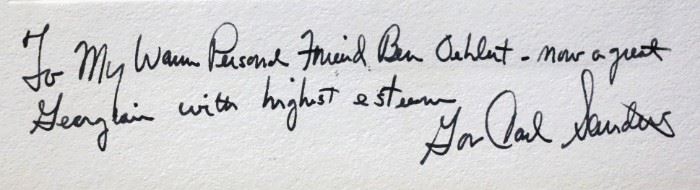 To My Warm Personal Friend Ben Oehlert - now a great
Georgian with highest esteem
Gov Carl Sanders